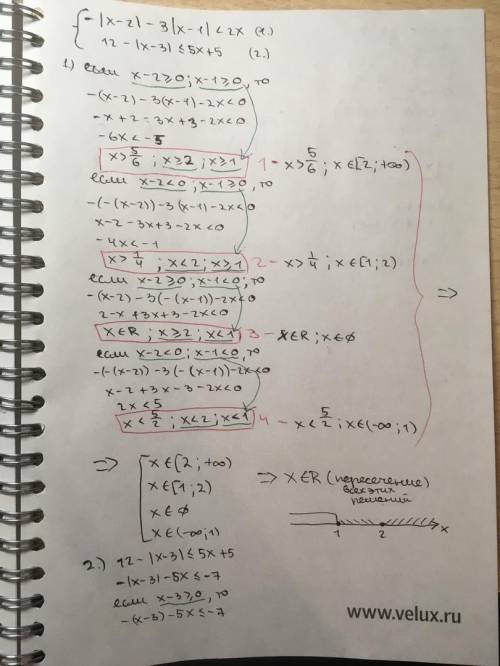 { -|x-2| - 3|x-1| < 2x (1.)
12 - |x-3| ≤ 5x+5 (2.)
1.) если x-2≥0; x-1≥0, то
-(x-2) - 3(x-1) - 2x<0
-x+2-3x+3-2x<0
-6x<-5
x>5/6; x≥2; x≥1 1 - x>5/6; x∈[2;+∞)
если x-2<0; x-1≥0, то
-(-(x-2)) - 3(x-1) - 2x<0
x-2-3x+3-2x<0
-4x<-1
x>1/4; x<2; x≥1 2 - x>1/4; x∈[1;2)
если x-2≥0; x-1<0, то
-(x-2) - 3(-(x-1)) - 2x<0
2-x+3x+3-2x<0
x∈R; x≥2; x<1 3 - x∈R; x∈∅
если x-2<0; x-1<0, то
-(-(x-2)) - 3(-(x-1)) - 2x<0
x-2+3x-3-2x<0
2x<5
x<5/2; x<2; x<1 4 - x<5/2; x∈(-∞;1)
⇒
⇒ [ x∈[2;+∞)
x∈[1;2)
x∈∅
x∈(-∞;1)
⇒ x∈R (пересечение
всех этих
решений)
1 2 x
2.) 12-|x-3|≤5x+5
-|x-3|-5x≤-7
если x-3≥0, то
-(x-3)-5x≤-7
www.velux.ru